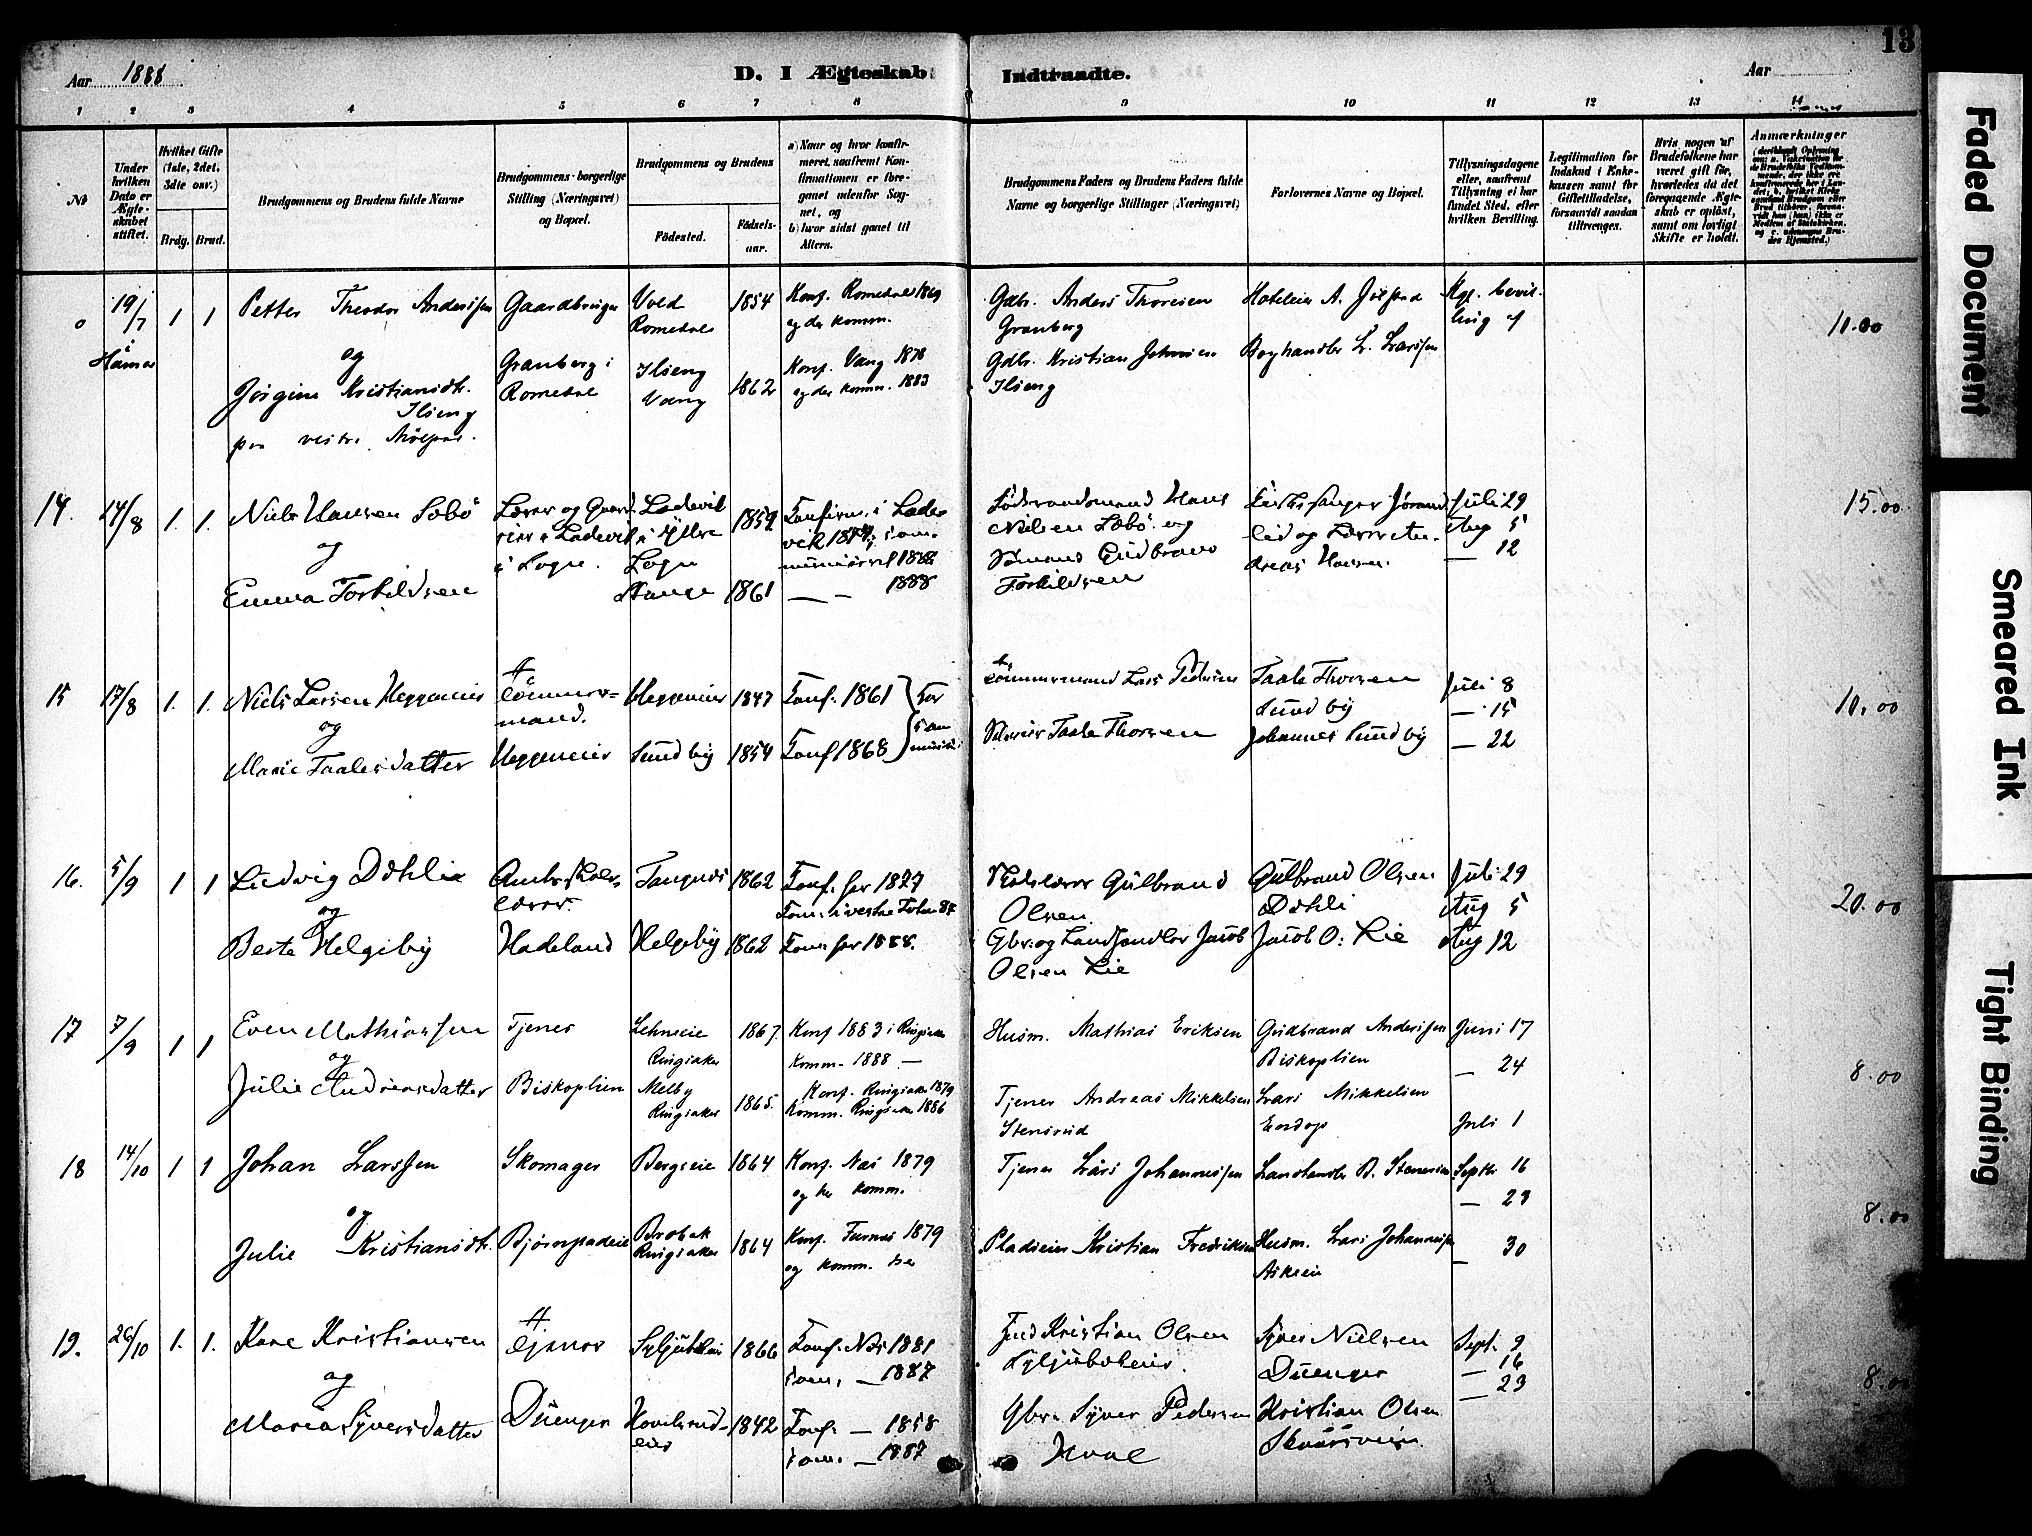 13
Aar 1888
D. I Ægteskab Indtraadte.
Aar
1 2 3 4 5 6 7 8 9 10 11 12 13 14
No
Under hvilken Dato er Ægteskabet stiftet.
Hvilket Gifte (1ste, 2det, 3die osv.)
Brdg. Brud.
Brudgommens og Brudens fulde Navne
Brudgommens borgerlige Stilling (Næringsvei) og Bopæl.
Brudgommens og Brudens
Fødested.
Fødselsaar.
a) Naar og hvor konfirmeret, saafremt Konfirmationen er foregaaet udenfor Sognet, og
b) hvor sidst gaaet til Alters.
Brudgommens Faders og Brudens Faders fulde Navne og borgerlige Stillinger (Næringsvei)
Forlovernes Navne og Bopæl.
Tillysningsdagene eller, saafremt Tillysning ei har fundet Sted, efter hvilken Bevilling.
Legitimation for Indskud i Enkekassen samt for Giftetilladelse, forsaavidt saadan tiltrænges.
Hvis nogen af Brudefolkene har været gift før, hvorledes da det foregaaende Ægteskab er opløst, samt om lovligt Skifte er holdt.
Anmærkninger
0 19/7 i Hamar 1 1
Petter Theodor Anderssen
og
Jørgine Kristiansdt.
Ilseng
paa vestre
Gaardbruger
Granberg i
Romedal
Vold
Romedal 1854
Ilseng
Vang 1862
Konf. Romedal 1869
og der komm.
Konf. Vang 1878
og der komm. 1883
Gdbr. Anders Thoresen
Granberg
Gdbr. Kristian Johnsen
Ilseng
Hoteleier A. Jølstad
Boghandler L. Larssen
Kgl. bevil-
ling
10.00
14. 14/8 1. 1.
Niels Hansen Sobø
og
Emma Torkildsen
Lærer og Gaard-
eier i Ladevik
i Sogn.
Ladevik
i Yttre
Sogn 1859
Stange 1861
Konfirm. i Lade-
vik 1874; kom-
municeret 1888
— — 1888
Hans
Nielsen Sobø og
Sømand Gudbrand
Torkildsen
Kirkesanger
lid og Lærer An-
dreas Hansen.
Juli 29
Aug 5
— 12
15.00
15 17/8 1. 1.
Niels Larsen Heggeneier
og
Marie Taalesdatter
Tømmer-
mand.
Heggeneier
Heggeneier 1847
Sundby 1854
Konf. 1861
Konf. 1868
Tømmermand Lars Pedersen
Taale Thorsen
Taale Thorsen
Sundby
Johannes Sundby
Juli 8
— 15
— 22
10.00
16. 5/9 1 1
Ludvig Dæhlie
og
Berte Helgeby
Amtsskole-
lærer.
Hadeland
Tangnes 1862
Helgeby 1862
Konf. her 1877
Kom. her 1888.
Skolelærer Gulbrand
Olsen.
Gbr. og Landhandler Jacob
Olsen Lie
Gulbrand Olsen
Dæhli
Jacob O. Lie
Juli 29
Aug 5
Aug 12
20.00
17 7/9 1 1
Even Mathiassen
og
Julie Andreasdatter
Tjener
Biskoplien
Lehneeie
Ringsaker 1867.
Melby
Ringsaker 1865.
Konf 1883 i Ringsaker
Komm. 1888 —
Konf. Ringsaker 1879
Komm. Ringsaker 1886
Husm. Mathias Eriksen
Tjener Andreas Mikkelsen
Stensrud
Gudbrand Anderssen
Biskoplien
Lars Mikkelsen
Juni 17
— 24
Juli 1
8.00
18 14/10 1 1
Johan Larssen
og
Julie Kristiansdt.
Skomager
Bergseie 1864
Brobæk
Ringsaker 1864
Konf. Næs 1879
og her komm.
Konf. Furnes 1879
og komm. her
Tjener Lars Johannessen
Pladseier Kristian Fredriksen
Landhandler B. Stenersen
Husm. Lars Johannessen
Askeeie
Septbr 16
— 23
— 30
8.00
19. 26/10 1. 1.
Kare Kristiansen
og
Maria Syversdatter
Tjener
Duenger
1866
1842
Konf. Næs 1881
Kom. — 1887
Konf. — 1858
Kom. — 1887
Kristian Olsen
Gbr. Syver Pedersen
Hval
Syver Nielsen
Duenger
Kristian Olsen
Sept. 9
— 16
— 23
8.00
Faded Document
Smeared Ink
Tight Binding